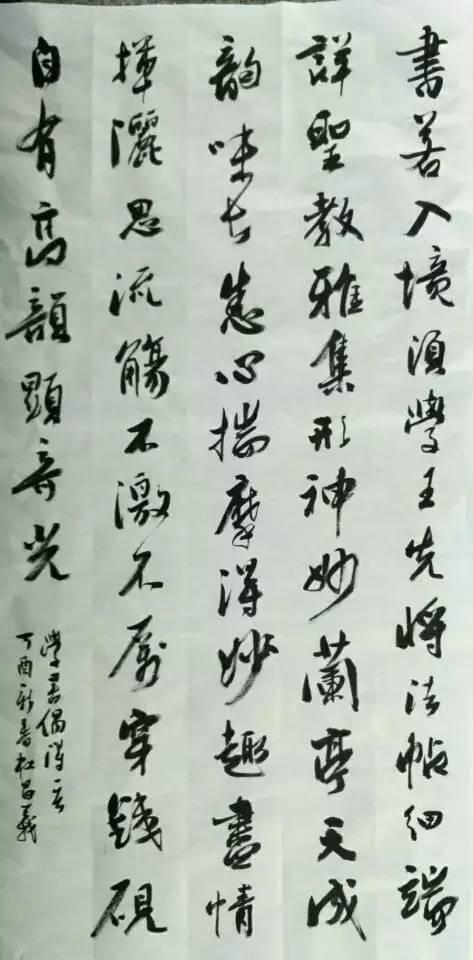 書若入境須學王先將法帖細端
詳聖教雅集形神妙蘭亭天成
韵味长悉心揣摩得妙趣盡情
揮灑思流觴不激不厲穿鐵硯
自有高韻顯奇光
學書偶得
丁酉新春杜昌義